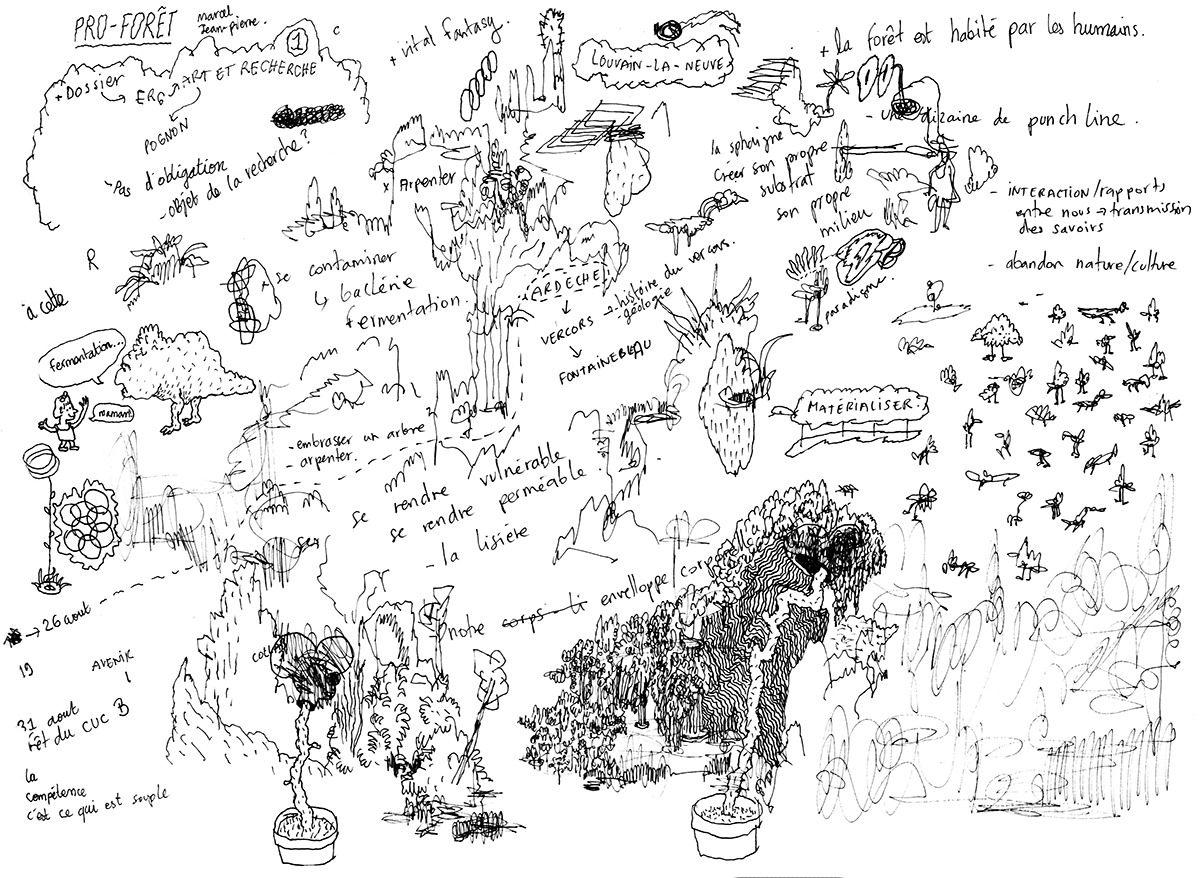 PRO-FORÊT
marcel
Jean-pierre.
1
C
+ Dossier
→ ERG → ART ET RECHERCHE
POGNON
Pas d'obligation
- objet de la recherche?
+ vital fantasy.
LOUVAIN-LA-NEUVE
+ la forêt est habité par les humains.
- une dizaine de punch line.
- INTERACTION/rapports
entre nous → transmission
des savoirs
- abandon nature/culture
la sphaigne
Créer son propre
substrat
son propre
milieu
paradigme.
x Arpenter
R
à cotte
+ se contaminer
↳ bactérie
fermentation.
ARDECHE
VERCORS → histoire du vercors.
géologie
FONTAINEBLEAU
fermentation...
maman!
MATÉRIALISER.
- embrasser un arbre
- arpenter.
se rendre vulnérable
se rendre perméable.
- la lisière
notre corps-li envelloppe corps
→ 26 aout
19
AVENIR
31 aout
rêt du CUC B
la
compétence
c'est ce qui est souple